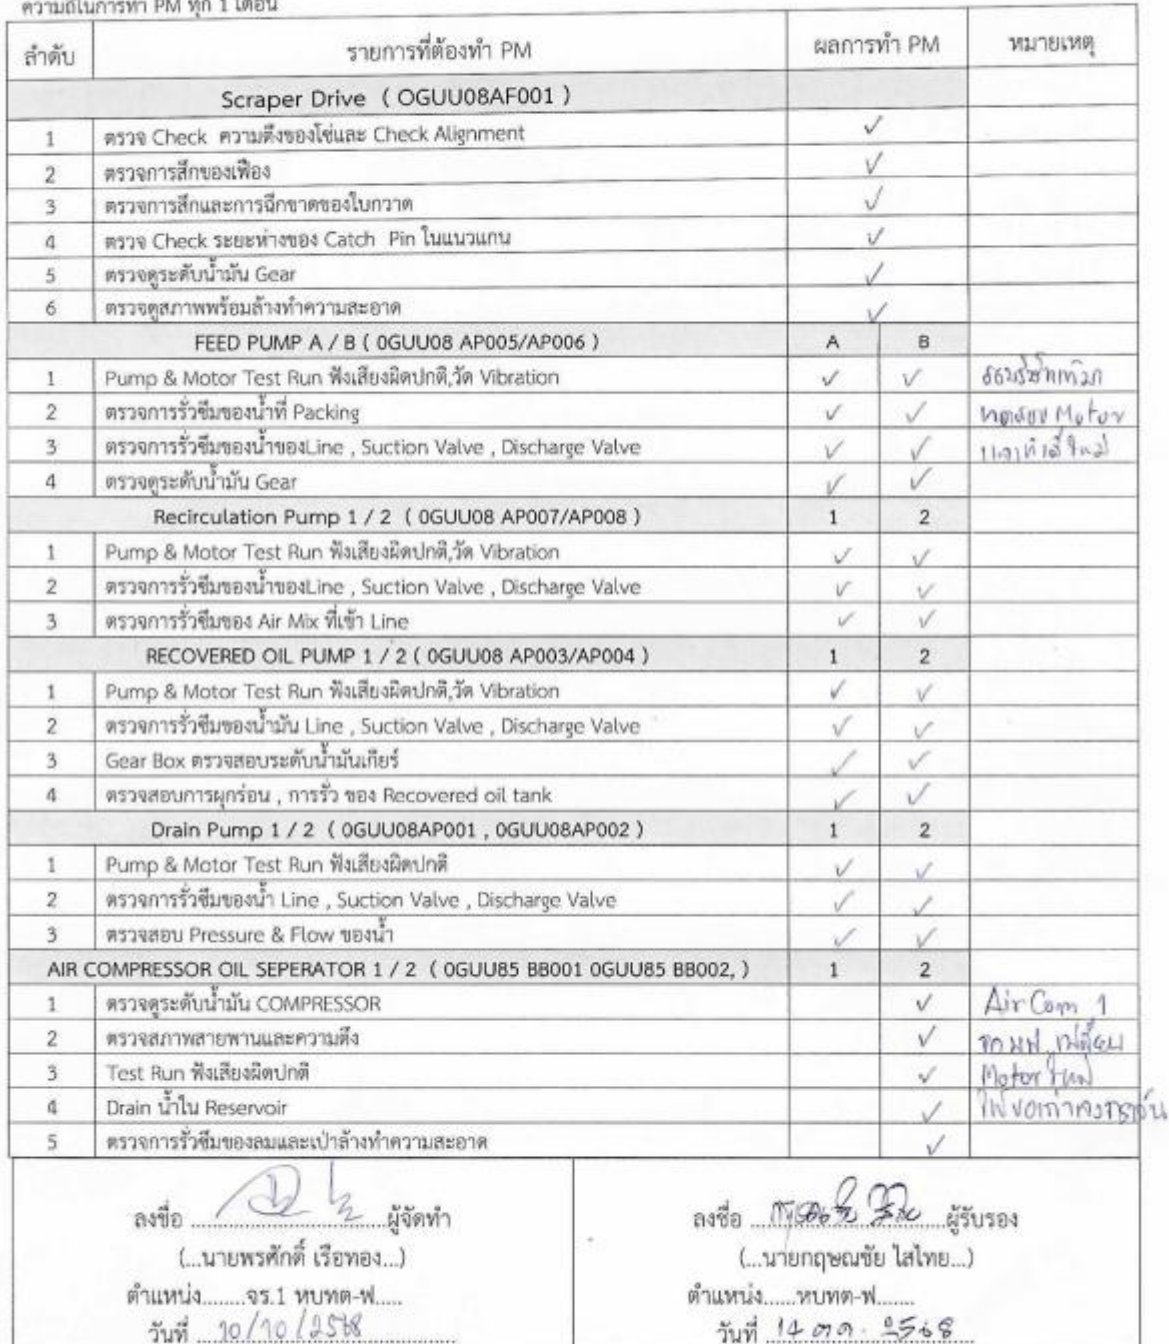 ความถี่ในการทำ PM ทุก 1 เดือน
ลำดับ รายการที่ต้องทำ PM ผลการทำ PM หมายเหตุ
Scraper Drive ( OGUU08AF001 )
1 ตรวจ Check ความตึงของโซ่และ Check Alignment ✓
2 ตรวจการสึกของเฟือง ✓
3 ตรวจการสึกและการฉีกขาดของใบกวาด ✓
4 ตรวจ Check ระยะห่างของ Catch Pin ในแนวแกน ✓
5 ตรวจดูระดับน้ำมัน Gear ✓
6 ตรวจดูสภาพพร้อมล้างทำความสะอาด ✓
FEED PUMP A / B ( 0GUU08 AP005/AP006 ) A B
1 Pump & Motor Test Run ฟังเสียงผิดปกติ,วัด Vibration ✓ ✓
2 ตรวจการรั่วซึมของน้ำที่ Packing ✓ ✓ Motor
3 ตรวจการรั่วซึมของน้ำของLine , Suction Valve , Discharge Valve ✓ ✓
4 ตรวจดูระดับน้ำมัน Gear ✓ ✓
Recirculation Pump 1 / 2 ( 0GUU08 AP007/AP008 ) 1 2
1 Pump & Motor Test Run ฟังเสียงผิดปกติ,วัด Vibration ✓ ✓
2 ตรวจการรั่วซึมของน้ำของLine , Suction Valve , Discharge Valve ✓ ✓
3 ตรวจการรั่วซึมของ Air Mix ที่เข้า Line ✓ ✓
RECOVERED OIL PUMP 1 / 2 ( 0GUU08 AP003/AP004 ) 1 2
1 Pump & Motor Test Run ฟังเสียงผิดปกติ,วัด Vibration ✓ ✓
2 ตรวจการรั่วซึมของน้ำมัน Line , Suction Valve , Discharge Valve ✓ ✓
3 Gear Box ตรวจสอบระดับน้ำมันเกียร์ ✓ ✓
4 ตรวจสอบการผุกร่อน , การรั่ว ของ Recovered oil tank ✓ ✓
Drain Pump 1 / 2 ( 0GUU08AP001 , 0GUU08AP002 ) 1 2
1 Pump & Motor Test Run ฟังเสียงผิดปกติ ✓ ✓
2 ตรวจการรั่วซึมของน้ำ Line , Suction Valve , Discharge Valve ✓ ✓
3 ตรวจสอบ Pressure & Flow ของน้ำ ✓ ✓
AIR COMPRESSOR OIL SEPERATOR 1 / 2 ( 0GUU85 BB001 0GUU85 BB002, ) 1 2
1 ตรวจดูระดับน้ำมัน COMPRESSOR ✓ Air Com 1
2 ตรวจสภาพสายพานและความตึง ✓
3 Test Run ฟังเสียงผิดปกติ ✓ Motor ใหม่
4 Drain น้ำใน Reservoir ✓
5 ตรวจการรั่วซึมของลมและเป่าล้างทำความสะอาด ✓
ลงชื่อ ผู้จัดทำ ลงชื่อ ผู้รับรอง
(...นายพรศักดิ์ เรือทอง...) (...นายกฤษณชัย ไสไทย...)
ตำแหน่ง........จร.1 หบทต-ฟ..... ตำแหน่ง......หบทต-ฟ.......
วันที่ 10/10/2568 วันที่ 14 ต.ค. 2568